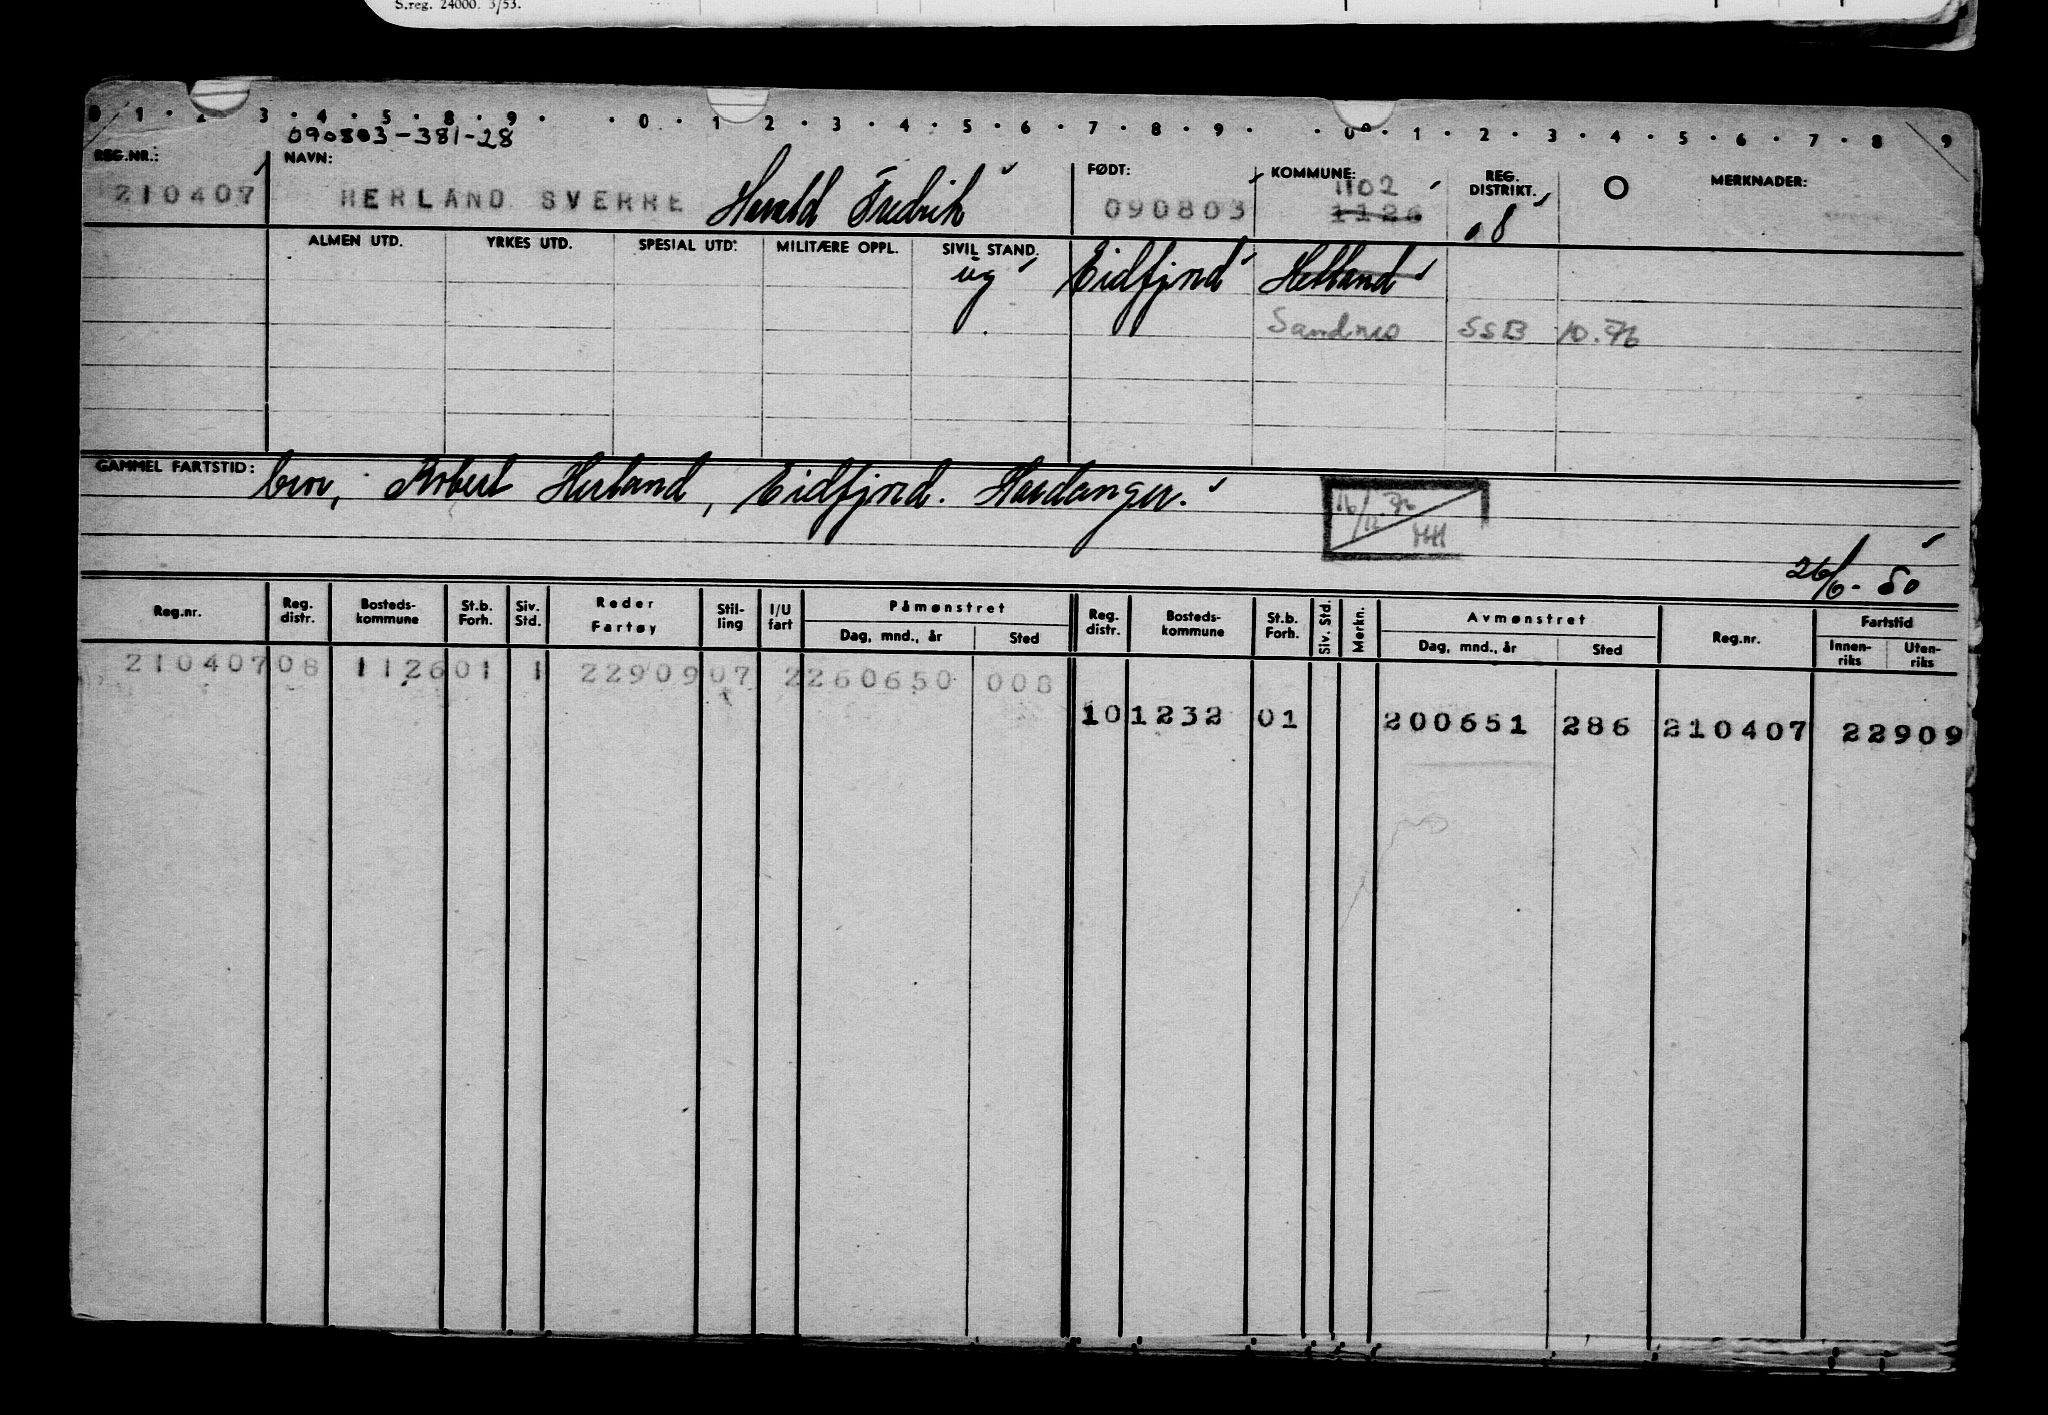 S.reg. 24000. 3/53.
0 1 2 3 4 5 8 9 0 1 2 3 4 5 6 7 8 9 0 1 2 3 4 5 6 7 8 9
090803-381-28
REG.NR.: NAVN: FØDT: KOMMUNE: REG. DISTRIKT. MERKNADER:
1102
210407 HERLAND SVERRE Harald Fredrik 090803 1126 08
ALMEN UTD. YRKES UTD. SPESIAL UTD. MILITÆRE OPPL. SIVIL STAND.
ug Eidfjord Hetland
Sandnes SSB 10.76
GAMMEL FARTSTID: bror, Robert Herland, Eidfjord. Hardanger.
16/12.76 HH
26/6-50
Reg.nr. Reg. distr. Bosteds-kommune St.b. Forh. Siv. Std. Reder Fartøy Stil-ling I/U fart Påmønstret Dag, mnd., år Sted Reg. distr. Bosteds-kommune St.b. Forh. Siv. Std. Merkn. Avmønstret Dag, mnd., år Sted Reg.nr. Fartstid Innen-riks Uten-riks
210407 08 1126 01 1 22909 07 2 260650 008
10 1232 01 200651 286 210407 22909